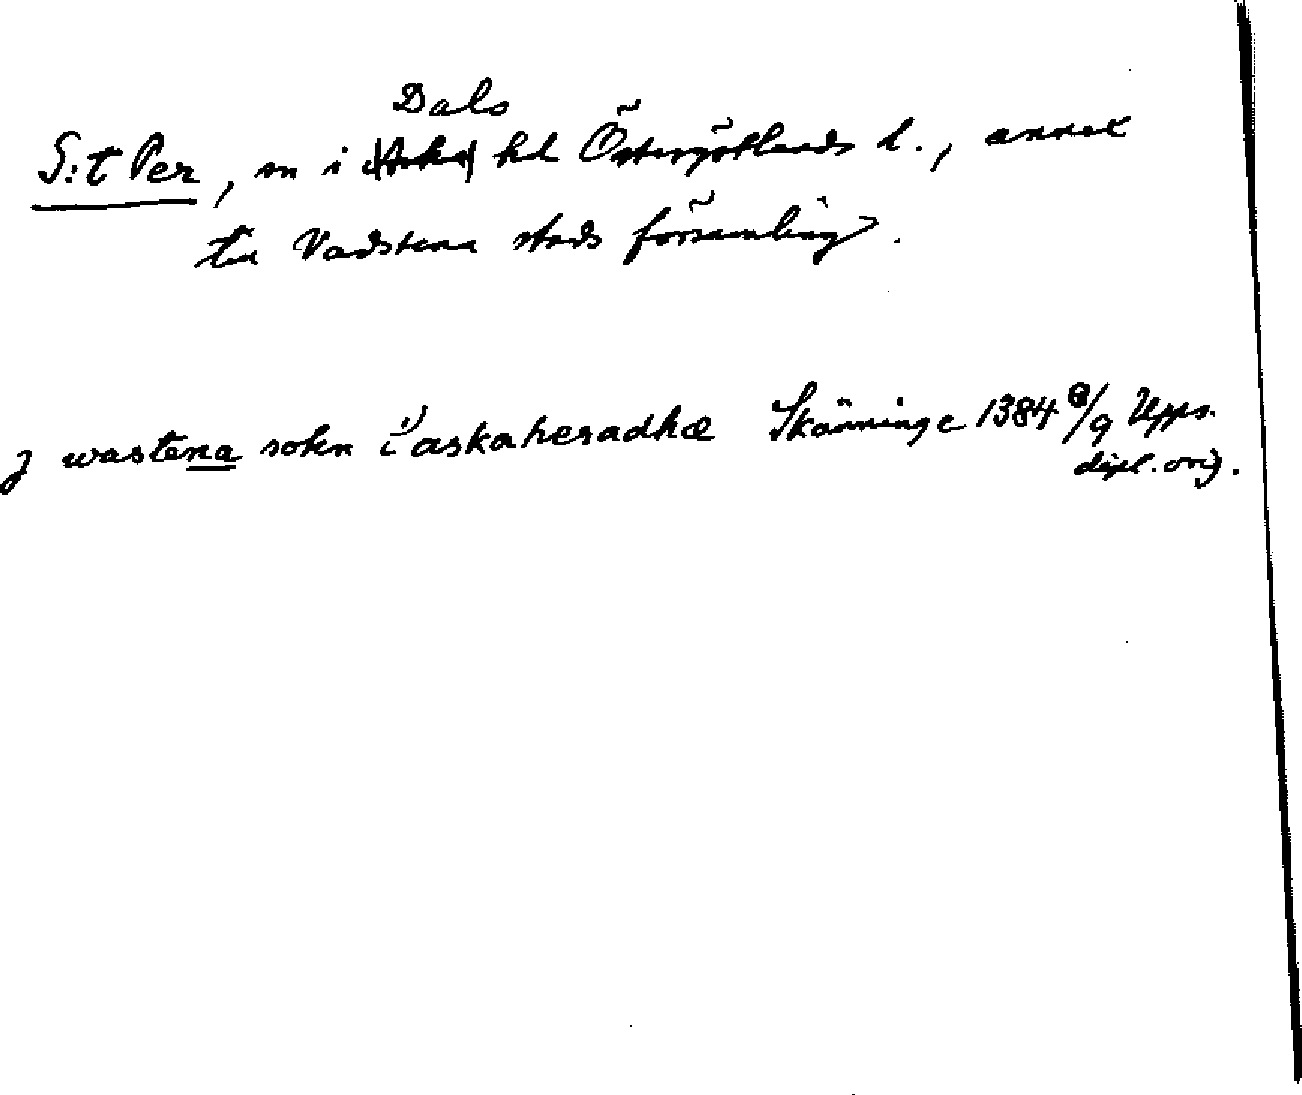 Dals
S:t Per, sn i hd Östergötlands l., annex
till Vadstena stads församling.
j wastena sokn i askaheradhæ Skänninge 1384 /9 Upps.
dipl. orig.